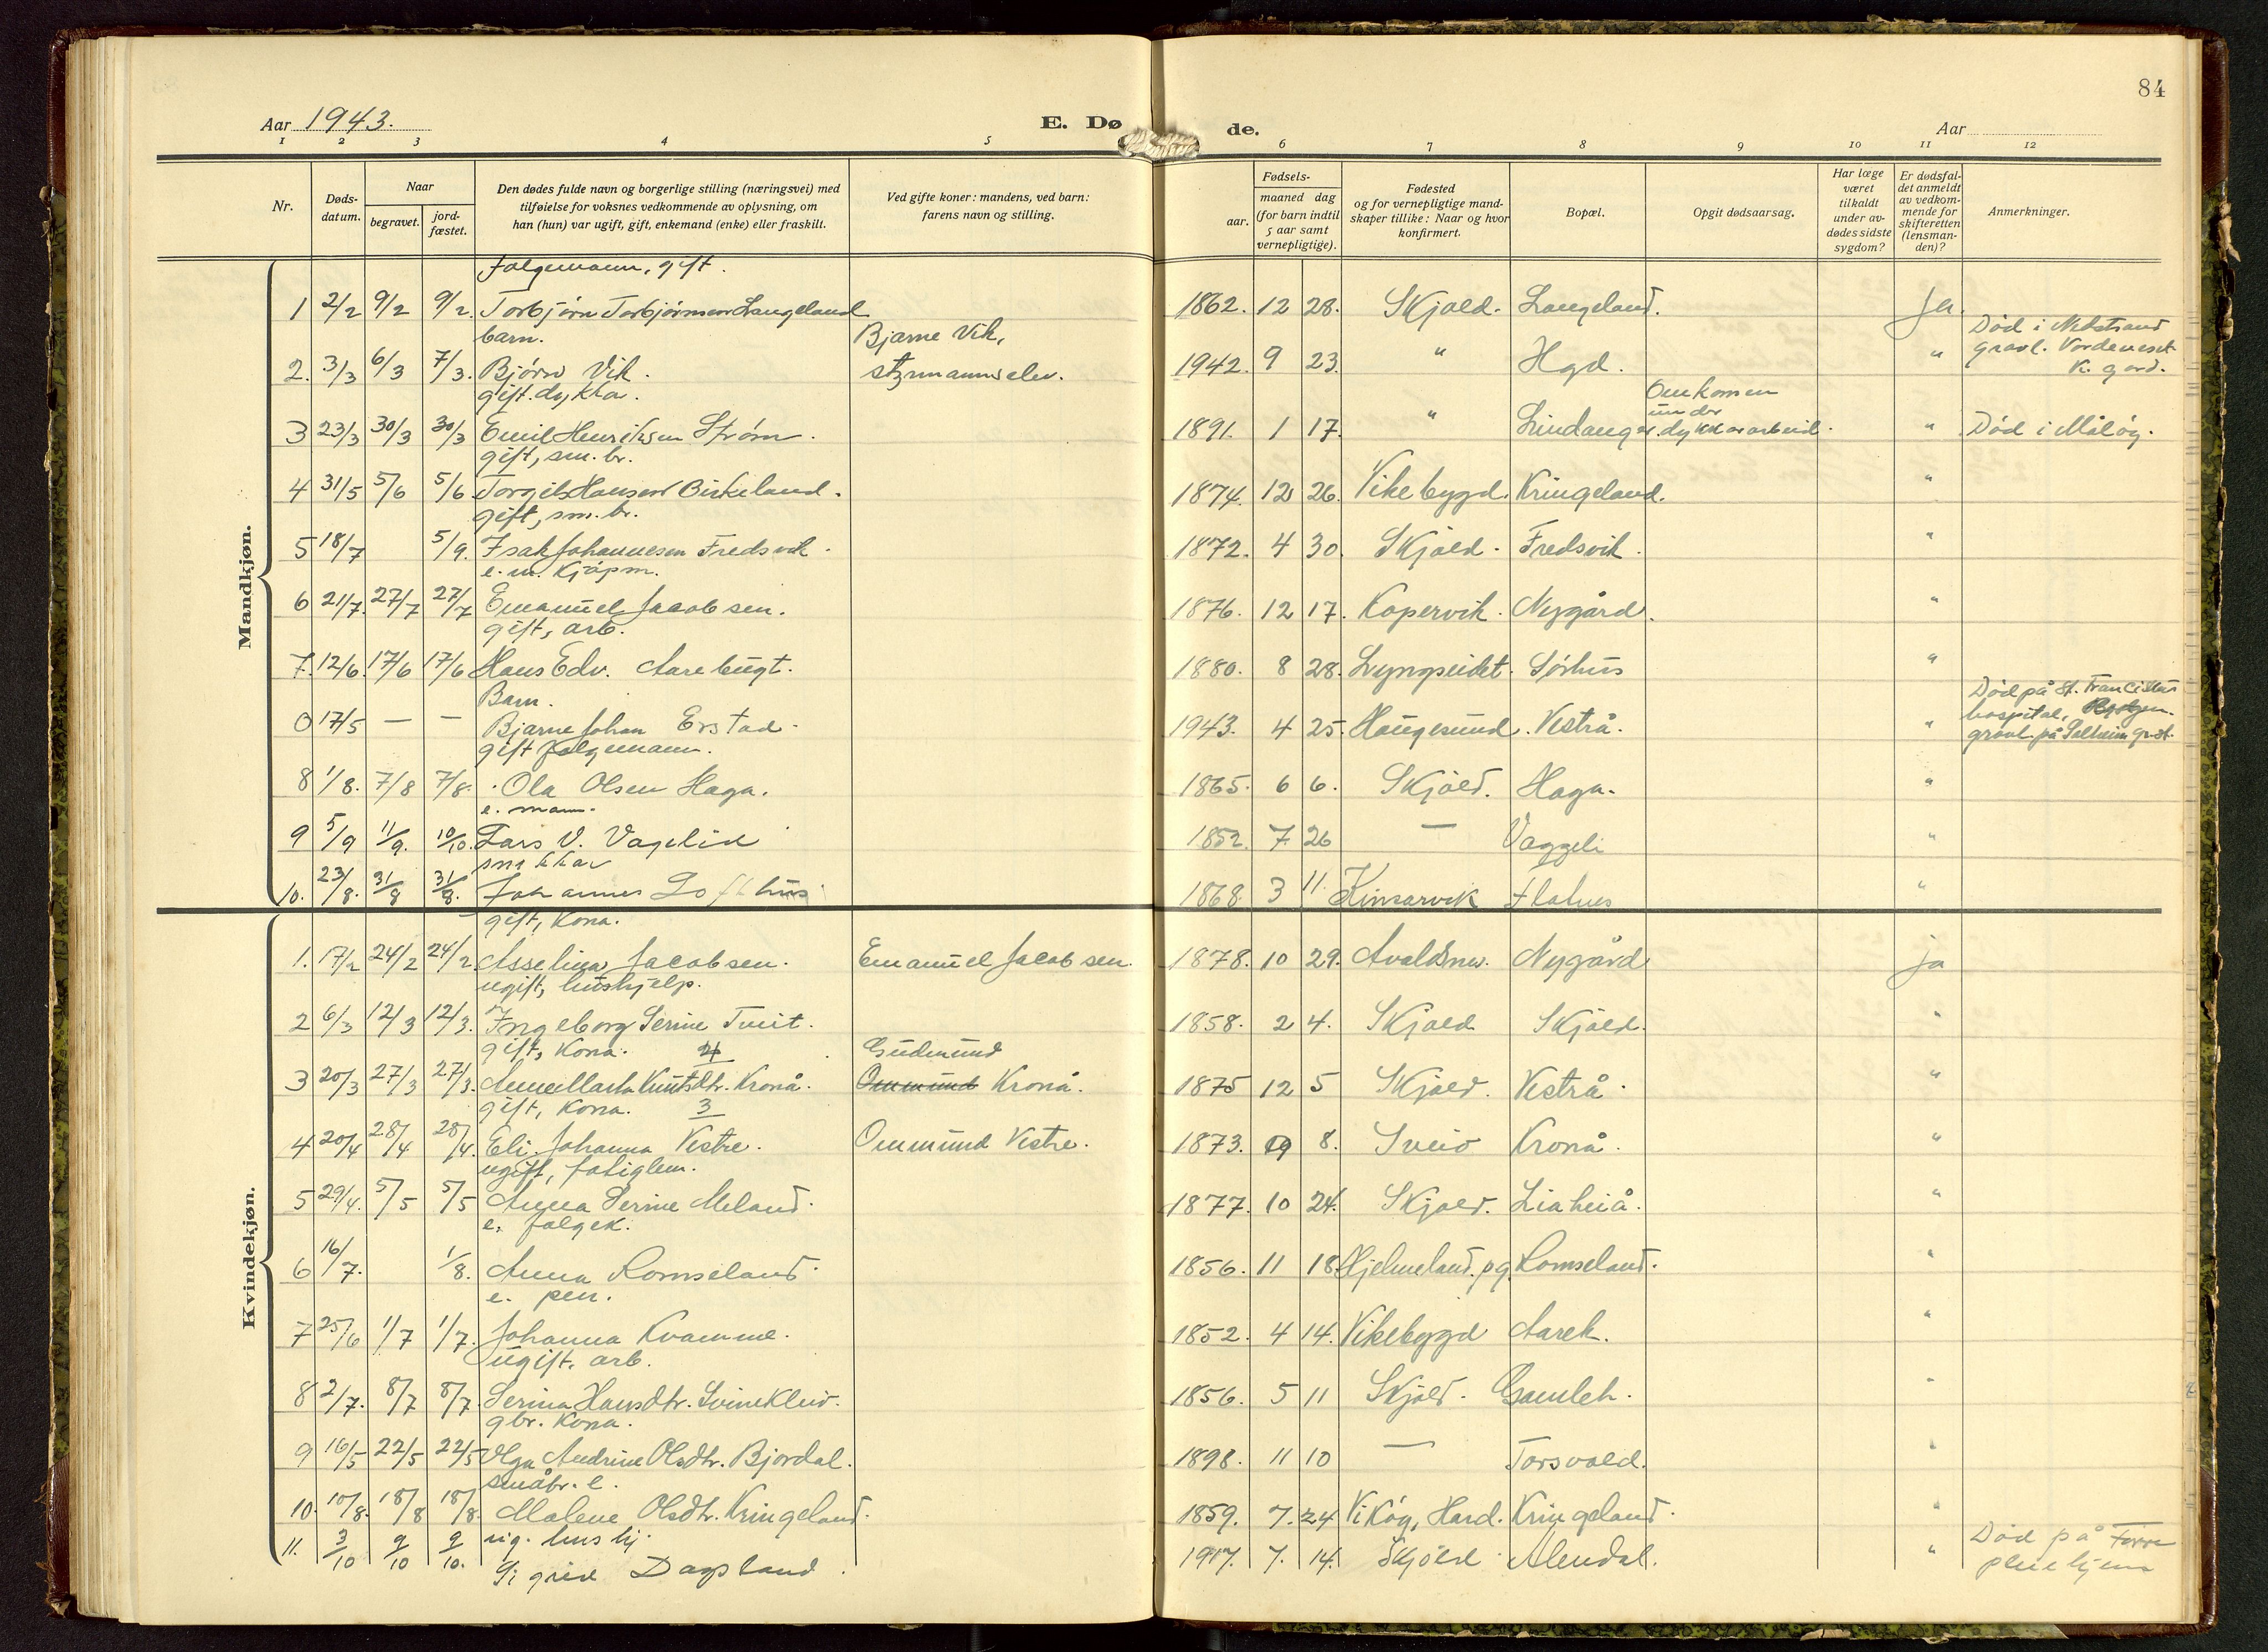 84
Aar 1943.
E. Dø de.
Aar
1 2 3 4 5 6 7 8 9 10 11 12
Nr.
Døds-datum.
Naar
begravet.
jord-fæstet.
Den dødes fulde navn og borgerlige stilling (næringsvei) med
tilføielse for voksnes vedkommende av oplysning, om
han (hun) var ugift, gift, enkemand (enke) eller fraskilt.
Ved gifte koner: mandens, ved barn:
farens navn og stilling.
Fødsels-
aar.
maaned dag
(for barn indtil
5 aar samt
vernepligtige).
Fødested
og for vernepligtige mand-
skaper tillike: Naar og hvor
konfirmert.
Bopæl.
Opgit dødsaarsag.
Har læge
været
tilkaldt
under av-
dødes sidste
sygdom?
Er dødsfal-
det anmeldt
av vedkom-
mende for
skifteretten
(lensman-
den)?
Anmerkninger.
Mandkjøn.
folgemann, gift.
1 2/2 9/2 9/2. Torbjørn Torbjørnsen Langeland 1862. 12 28. Skjold. Langeland. Ja.
barn. Bjarne Vik, Død i Nedstrand
2. 3/3 6/3 7/3. Bjørn Vik. styrmannselev. 1942. 9 23. " Hgd. " gravl. Vordeneset
K. gard.
gift. dykkar. Omkomen
under
3 23/3 30/3 30/3 Emil Henriksen Strøm. 1891. 1 17. " Lindanger. dykkararbeid. " Død i Måløy.
gift, sm. br.
4 31/5 5/6 5/6 Torgils Hansen Birkeland. 1874. 12 26. Vikebygd. Kringeland. "
gift, sm. br.
5 18/7 5/9. Isak Johannesen Fredsvik. 1872. 4 30. Skjold. Fredsvik. "
e. m. Kjøpm.
6 21/7. 27/7 27/7 Emanuel Jacobsen. 1876. 12 17. Kopervik. Nygård. "
gift, arb.
7. 12/6. 17/6 17/6 Hans Edv. Aarebugt. 1880. 8 28. Lyngseidet. Sørhus "
Barn. Død på St. Franciskus
hospital,
0 17/5 — — Bjarne Johan Erstad. 1943. 4 25. Haugesund. Vestrå. " gravl. på Solheim gr.st.
gift folgemann.
8 1/8. 7/8 7/8. Ola Olsen Haga. 1865. 6 6. Skjold. Haga. "
e. mann.
9 5/9 11/9. 10/10. Lars V. Vagelid 1852. 7. 26 — Vaggeli "
10. 23/8. 31/8 31/8. Johannes Lofthus 1868. 3 11. Kinsarvik "
Kvindekjøn.
gift, Kona.
1. 17/2 24/2 24/2. Asselina Jacobsen. Emanuel Jacobsen. 1878. 10 29. Nygård ja
ugift, hushjelp.
2 6/3 12/3 12/3. Ingeborg Serine Tveit. 1858. 2 4. Skjold Skjold. "
gift, Kona. 4 Gudmund
3 20/3 27/3 27/3. Anne Marta Knutsdtr. Kronå. Ommund Kronå. 1875 12 5 Skjold. Vestrå. "
gift, Kona. 3
4 20/4 28/4 28/4. Eli Johanna Vestre. Ommund Vestre. 1873. 9 8. Sveio Kronå. "
ugift, fatiglem.
5 29/4. 5/5 5/5 Anna Serine Meland. 1877. 10 24. Skjold. Liaheiå. "
e. folgek.
6 16/7. 1/8. Anna Romseland. 1856. 11 18. Hjelmeland. pg Romseland. "
e. pen.
7 25/6 1/7 1/7. Johanna Kvamme. 1852. 4 14. Vikebygd Aarek. "
ugift. arb.
8 2/7. 8/7 8/7. Serina Hansdtr. Svinekleiv. 1856. 5 11 Skjold. Gamlek. "
gbr. Kona.
9 16/5 22/5 22/5 Olga Andrine Olsdtr. Bjordal. 1898. 11 10 — Torsvold. "
småbr. e.
10. 10/8. 18/8 18/8. Malene Olsdtr. Kringeland. 1859. 7. 24 Vikøy, Hard. Kringeland. "
ug. hushj. Død på Førre
11. 3/10 9/10 9/10. Sigrid Dagsland. 1917. 7. 14. Skjold Alendal. " pleiehjem